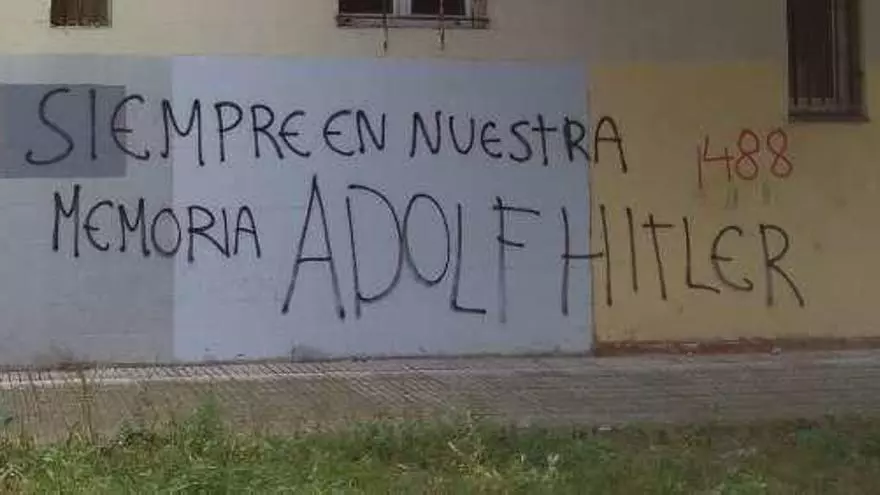 SIEMPRE EN NUESTRA
1488
MEMORIA ADOLF HITLER